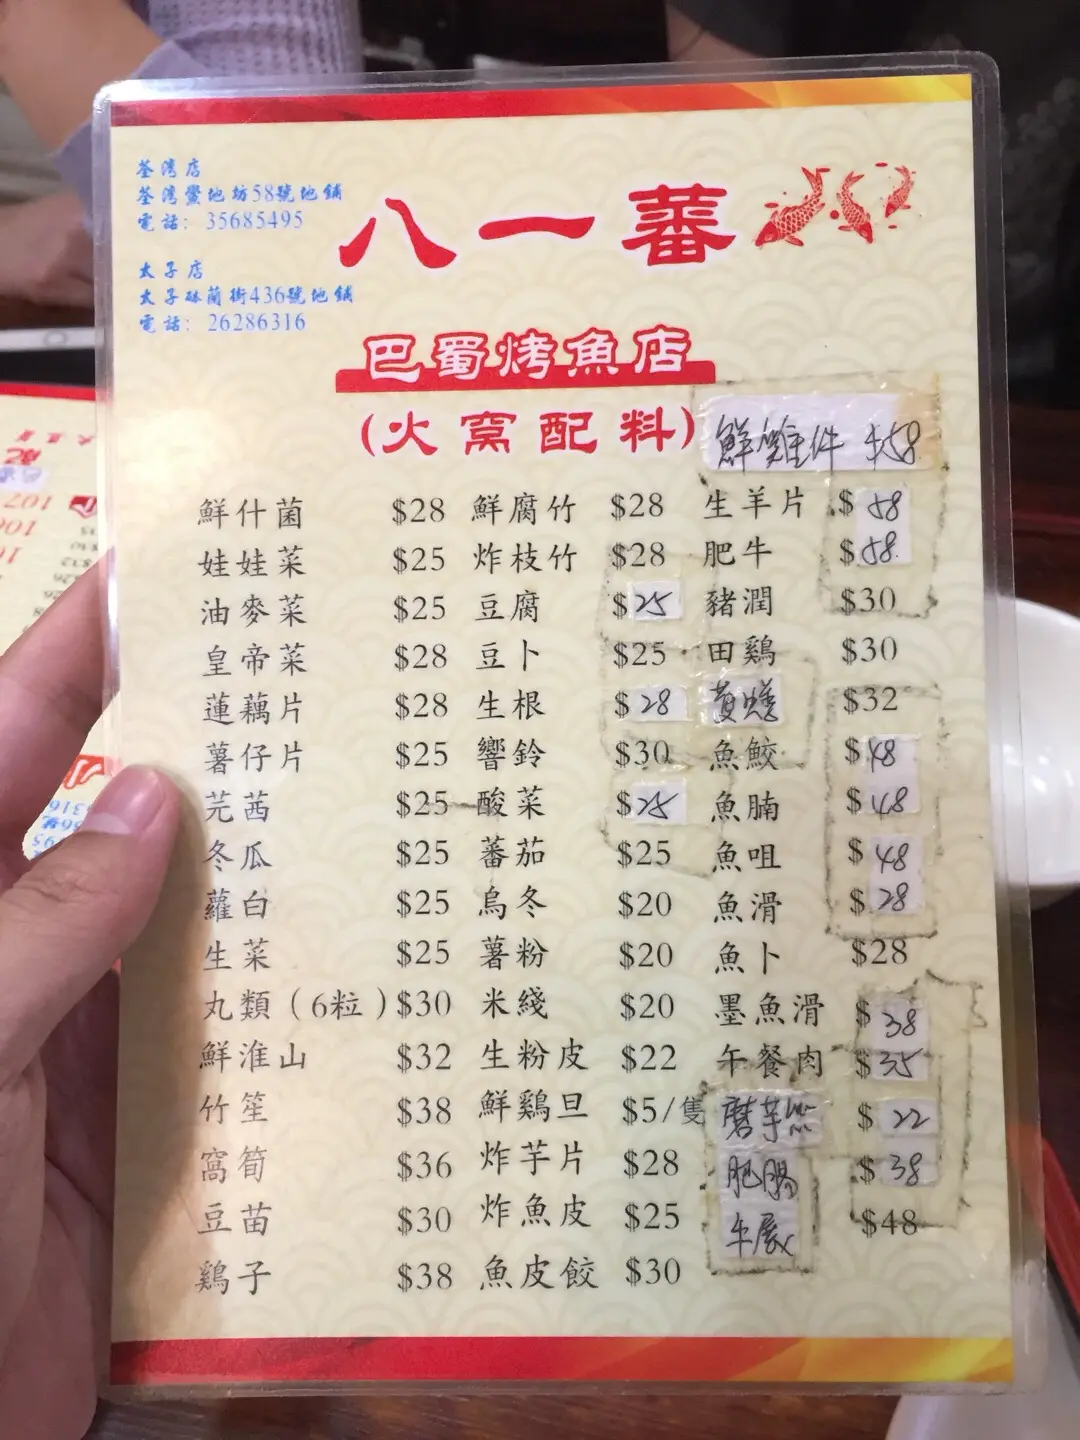 荃灣店
荃灣鱟地坊58號地鋪
電話: 35685495
太子店
太子砵蘭街436號地鋪
電話: 26286316
八一蕃
巴蜀烤魚店
(火窩配料)
鮮雞件 $58
鮮什菌 $28 鮮腐竹 $28 生羊片 $58
娃娃菜 $25 炸枝竹 $28 肥牛 $58
油麥菜 $25 豆腐 $25 豬潤 $30
皇帝菜 $28 豆卜 $25 田鷄 $30
蓮藕片 $28 生根 $28 黃鱔 $32
薯仔片 $25 響鈴 $30 魚鮫 $48
芫茜 $25 酸菜 $25 魚腩 $48
冬瓜 $25 蕃茄 $25 魚咀 $48
蘿白 $25 烏冬 $20 魚滑 $28
生菜 $25 薯粉 $20 魚卜 $28
丸類（6粒）$30 米綫 $20 墨魚滑 $38
鮮淮山 $32 生粉皮 $22 午餐肉 $35
竹笙 $38 鮮鷄旦 $5/隻 磨芋絲 $22
窩筍 $36 炸芋片 $28 肥腸 $38
豆苗 $30 炸魚皮 $25 牛展 $48
鷄子 $38 魚皮餃 $30